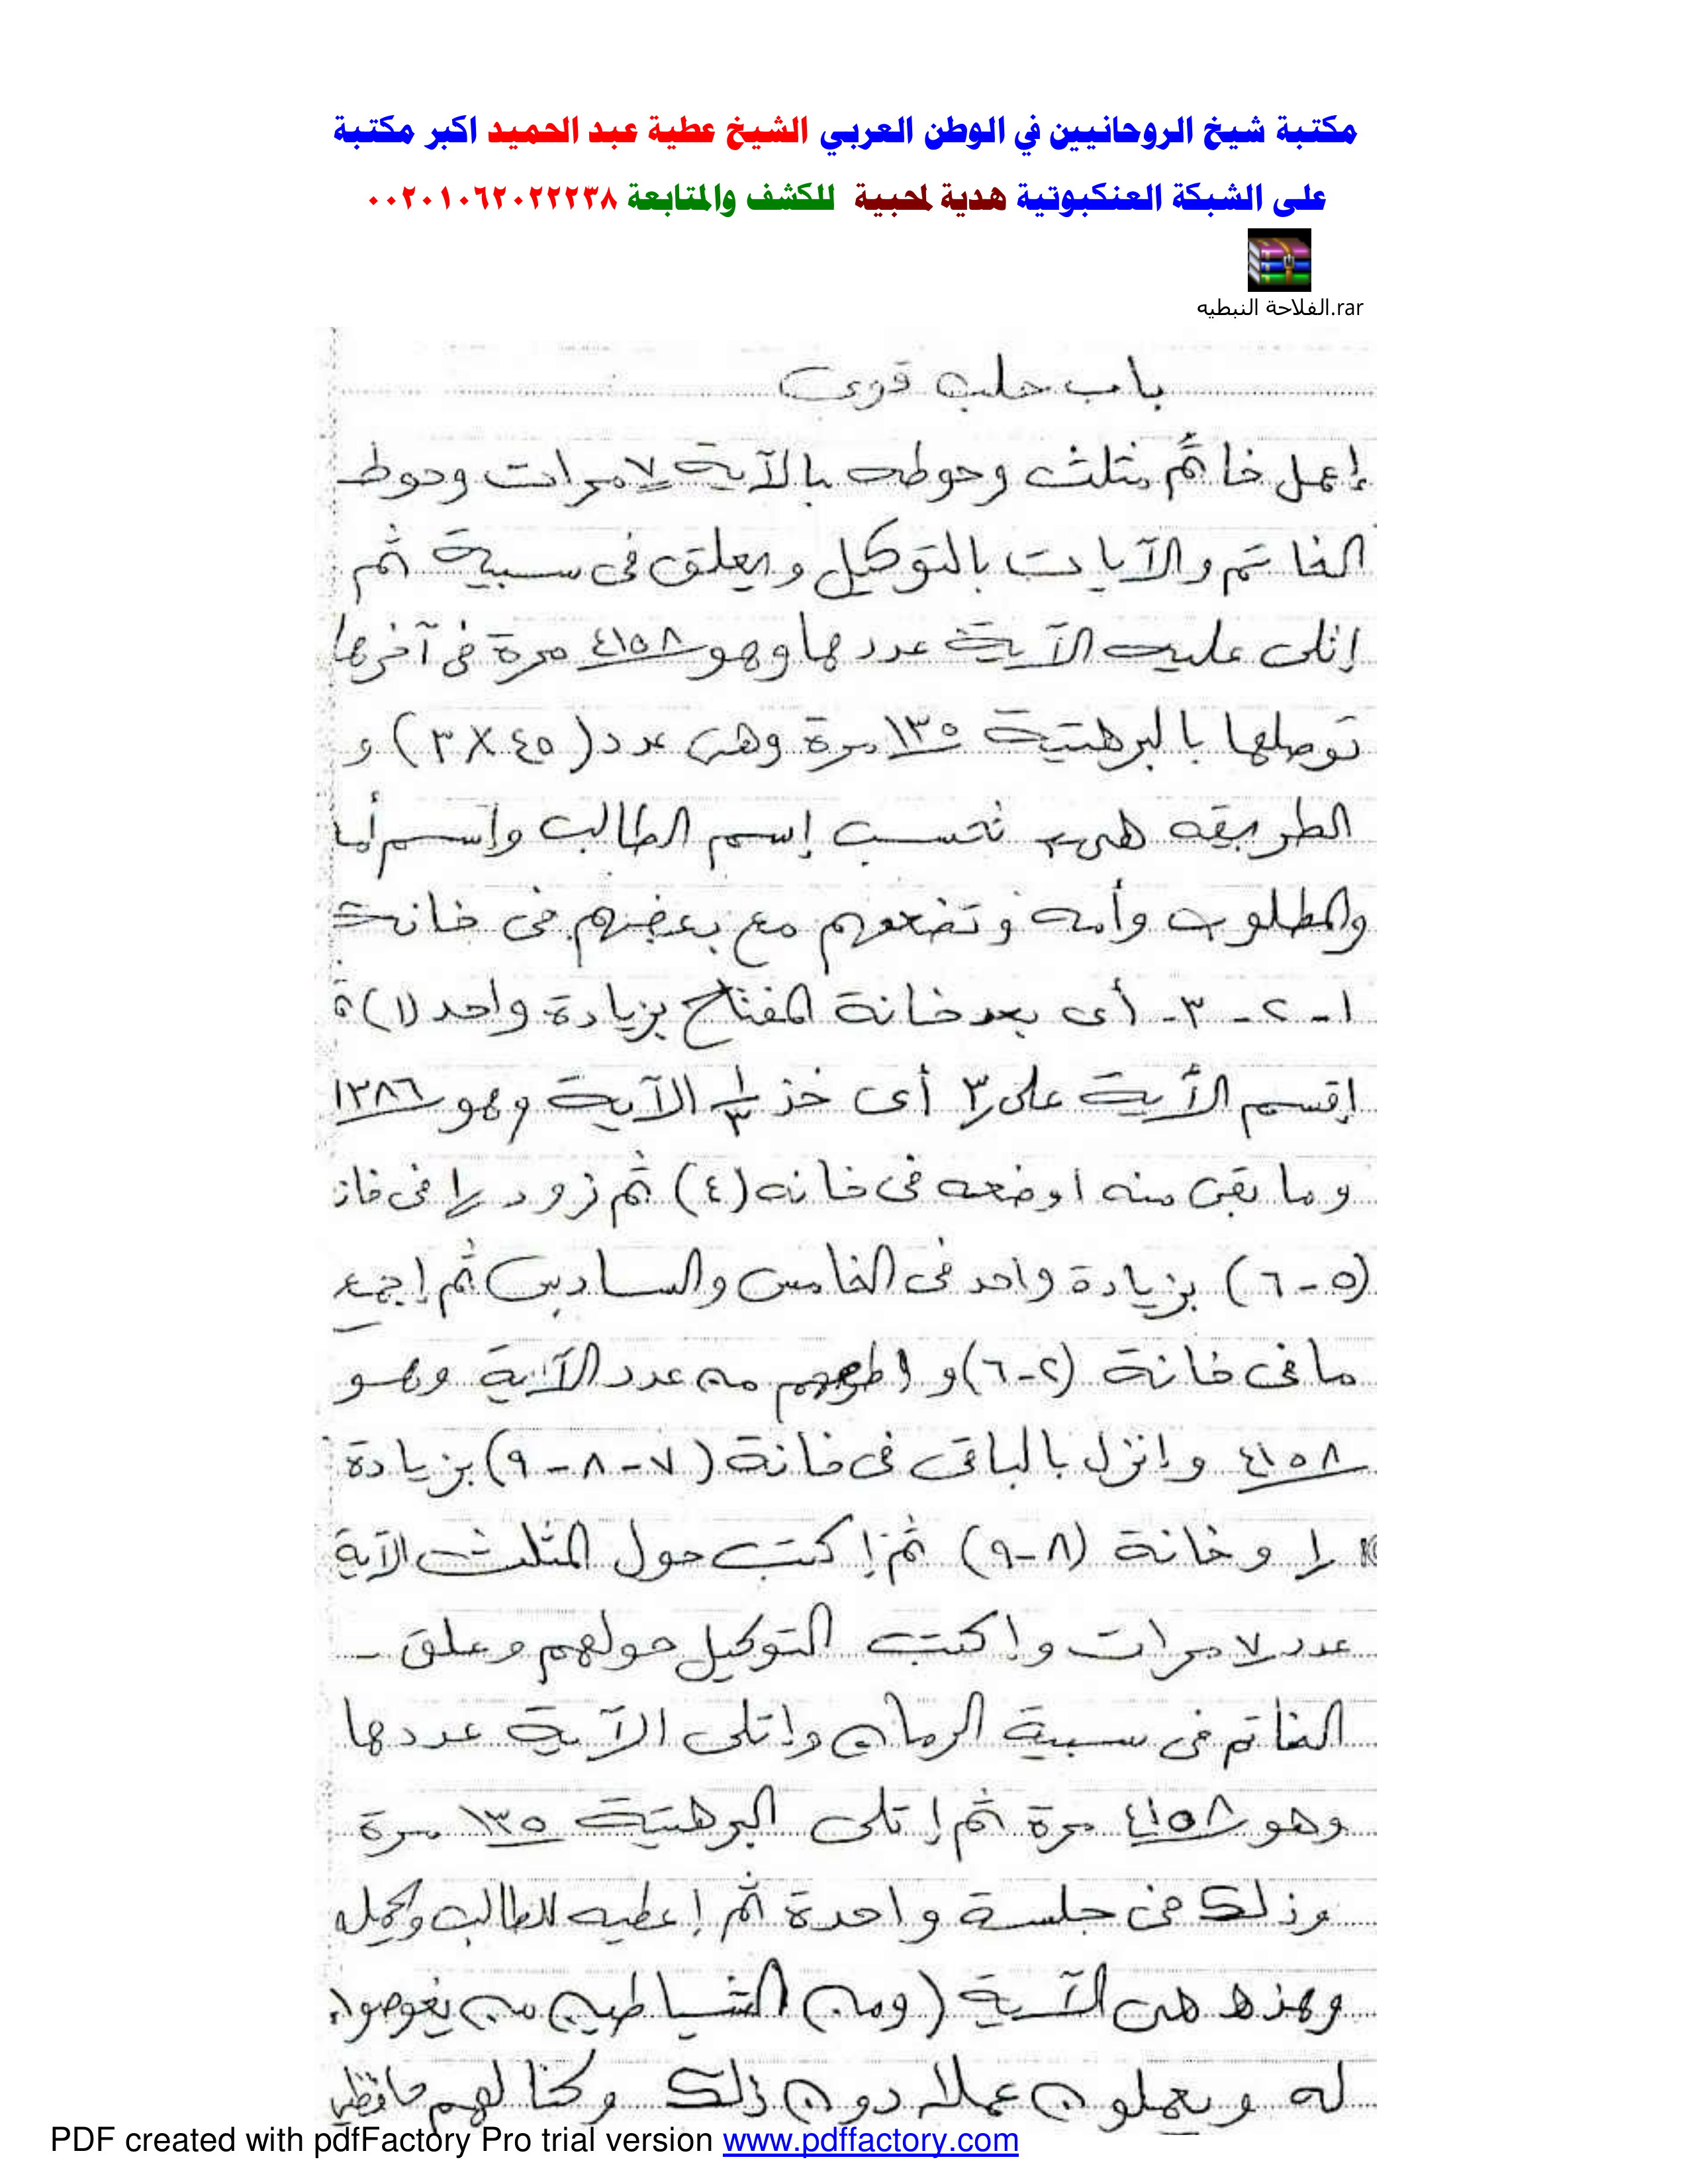 مكتبة شيخ الروحانيين في الوطن العربي الشيخ عطية عبد الحميد اكبر مكتبة
على الشبكة العنكبوتية هدية لمحبية للكشف والمتابعة ٠٠٢٠١٠٦٢٠٢٢٢٣٨
الفلاحة النبطيه.rar
باب جلب قوى
إعمل خاتم مثلث وحوطه بالآية ٧ مرات وحوط
الخاتم والآيات بالتوكيل ويعلق فى سيبة ثم
إتلى عليه الآية عددها وهو ٤١٥٨ مرة فى آخرها
توصلها بالبرهتية ١٣٥ مرة وهى عدد (٤٥ X ٣) و
الطريقه هى تحسب إسم الطالب وإسم أما
والمطلوب وأمه وتضعهم مع بعضهم فى خانة
١ - ٢ - ٣ - أى بعد خانة المفتاح بزيادة واحد (١) ثم
إقسم الأية على ٣ أى خذ ١/٣ الآية وهو ١٣٨٦
وما بقى منه اوضعه فى خانه (٤) ثم زود ١ فى خاز
(٥ - ٦) بزيادة واحد فى الخامس والسادس ثم إجمع
ما فى خانة (٢-٦) و اطرحهم من عدد الآية وهو
٤١٥٨ وإنزل بالباقى فى خانة (٧ - ٨ - ٩) بزيادة
١ و خانة (٨-٩) ثم إكتب حول المثلث الآية
عدد ٧ مرات وإكتب التوكيل حولهم وعلق -
الخاتم فى سيبة الرمان وإتلى الآية عددها
وهو ٤١٥٨ مرة ثم إتلى البرهتية ١٣٥ مرة
وذلك فى جلسة واحدة ثم إعطيه للطالب ويحمله
وهذه هى الآية (ومن الشياطين من يغوصوا
له ويعملون عملا دون ذلك وكنا لهم حافظين
PDF created with pdfFactory Pro trial version www.pdffactory.com